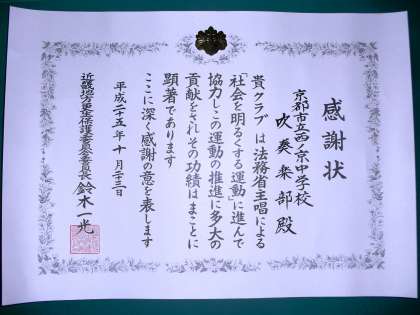 感謝状
京都市立西ノ京中学校
吹奏楽部殿
貴クラブは法務省主唱による
「社会を明るくする運動」に進んで
協力しこの運動の推進に多大の
貢献をされその功績はまことに
顕著であります
ここに深く感謝の意を表します
平成二十五年十月二十三日
近畿地方更生保護委員会委員長 鈴木一光